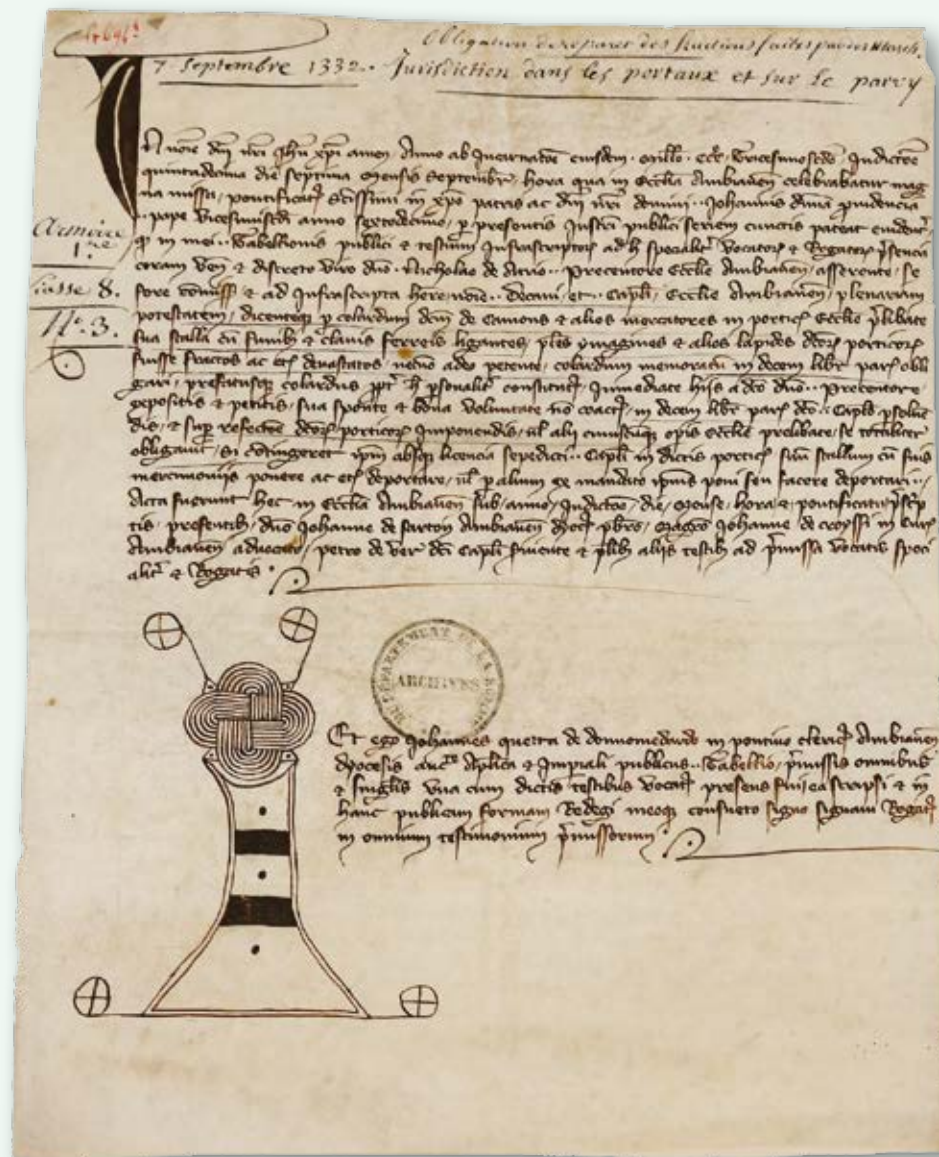 Obligation de reparer des fractions faites par des March.
7 Septembre 1332. Jurisdiction dans les portaux et sur le parvy
Armoire
1.re
Liasse 8.
N.o 3.
In noie dni nri Jhu xpi amen. Anno ab Incarnatoe eiusdem millo ccc Tricesimosecdo Indictoe
quintadecima die septima mensis Septembr, hora qua in Ecclia Ambianen celebrabatur mag
na missa, pontificat scissimi in xpo patris ac dni nri domini Johannis divina prudencia
pape vicesimiscdi anno sextodecimo, per presentis Instri publici seriem cunctis pateat evident
q in mei Tabellionis publici & testium Infrascriptor ad h specialit vocator & Rogator psencia
coram ven & discreto viro dno Nicholao de Atrio Precentore Ecclie Ambianen, asserente se
fore & ad Infrascripta here noie Decani et Capli Ecclie Ambianen plenariam
potestatem, dicenteq p colardum dcm de Camons & alios mercatores in portic Ecclie plibate
sua stalla cu funib & clavis ferreis ligantes, ples ymagines & alios lapides dcor porticor
fuisse fractos ac devastatos, necno adeo petente, colardum memoratu in decem libr paris obli
gari, prefatusq colardus ppt h psonalit constitut, Inmediate hiis a dco dno Precentore
expositis & petitis, sua sponte & bona voluntate no coact, in decem libr paris dco Caplo psolve
dis, & sup refectoe dcor porticor Imponendis, ul alii cuiuscuq opis Ecclie prelibate, se totaliter
obligavit, si contingeret ipm absq licencia sepedicti Capli in dictis portic suu stallum cu suis
mercimoniis ponere ac deportare, ul p alium ex mandato ipius poni seu facere deportari
Acta fuerunt hec in Ecclia Ambianen sub anno, Indictoe, die, mense, hora & pontificatu pscrp
tis, presentib, dno Johanne de Sarton Ambianen dyoc pbro, magro Johanne de croyssi in Cur
Ambianen advocato, petro de Ver dci Capli svuente & plib aliis testib ad pmissa vocatis speci
alit & Rogatis.
DÉPARTEMENT DE LA SOMME
ARCHIVES
Et ego Johannes querta de donnomedardo in pontivo cleric Ambianen
dyocesis auct Aplica & Impiali publicus Tabellio, pmissis omnibus
& singlis una cum dictis testibus vocat presens fui, ea scripsi & in
hanc publicam formam Redegi meoq consueto signo signavi Rogat
in omnium testimonium pmissorum